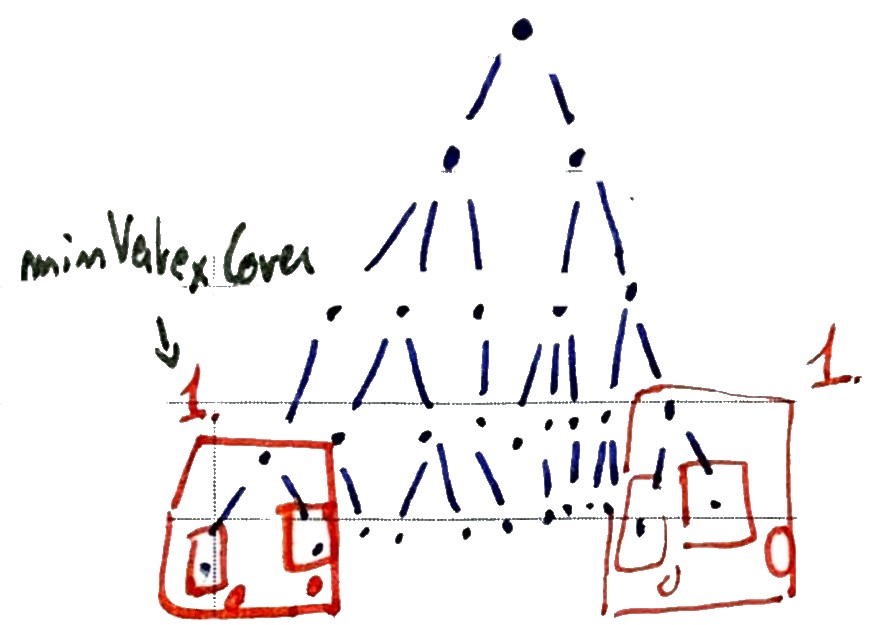 min Vertex Cover
1.
1.
0
0
0
0